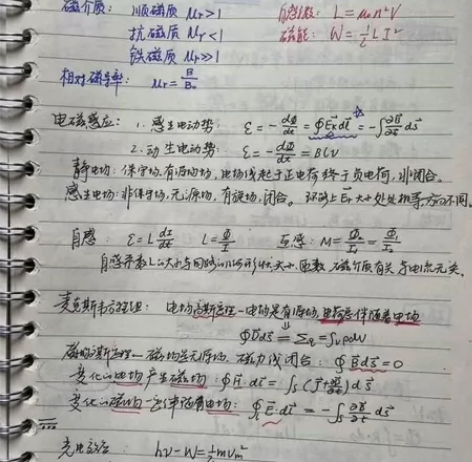 磁介质: 顺磁质 μr>1 自感系数: L=μ₀n²V
抗磁质 μr<1 磁能: W=½LI²
铁磁质 μr>>1
相对磁导率: μr=B/B₀
电磁感应: 1. 感生电动势 ε=-dΦ/dt=∮E⃗k dl⃗=-∫∂B⃗/∂t ds⃗
2. 动生电动势: ε=-dΦ/dt=BLV
静电场: 保守场,有源场,电场线起于正电荷,终于负电荷,非闭合。
感生电场: 非保守场,无源场,有旋场,闭合。环路上E⃗k大小处处相等,方向不同。
自感: ε=L dI/dt L=Φ/I 互感: M=Φ/I₁=Φ/I₂
自感系数L的大小与回路的几何形状、大小、匝数、磁介质有关与电流无关。
麦克斯韦方程组: 电场高斯定理-电场是有源场,电荷总伴随着电场
∮D⃗ds⃗=∑q=∫ᵥρdV
磁场高斯定理-磁场是无源场,磁力线闭合: ∮B⃗ds⃗=0
变化的电场产生磁场: ∮H⃗·dl⃗=∫s(J⃗+∂D⃗/∂t)ds⃗
变化的磁场一定伴随着电场: ∮L E⃗·dl⃗=-∫s ∂B⃗/∂t ds⃗
光电效应 hν-W=½mVm²